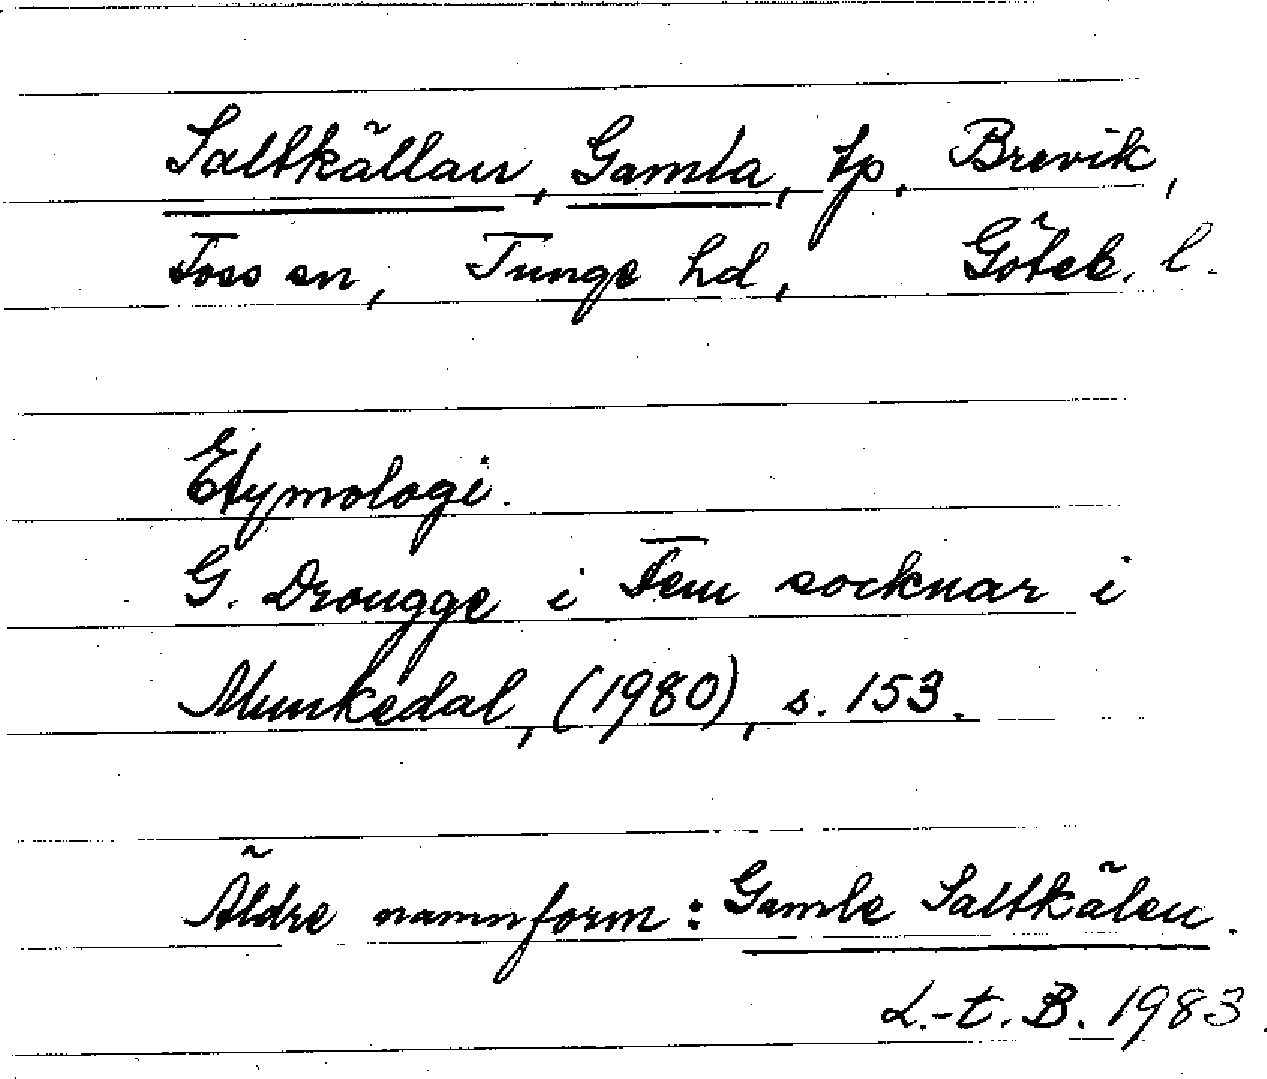 Saltkällan, Gamla, tp. Brevik,
Foss sn, Tunge hd, Göteb. l.
Etymologi.
G. Drougge i Fem socknar i
Munkedal, (1980), s. 153.
Äldre namnform: Gamle Saltkälen.
L.-t. B. 1983.